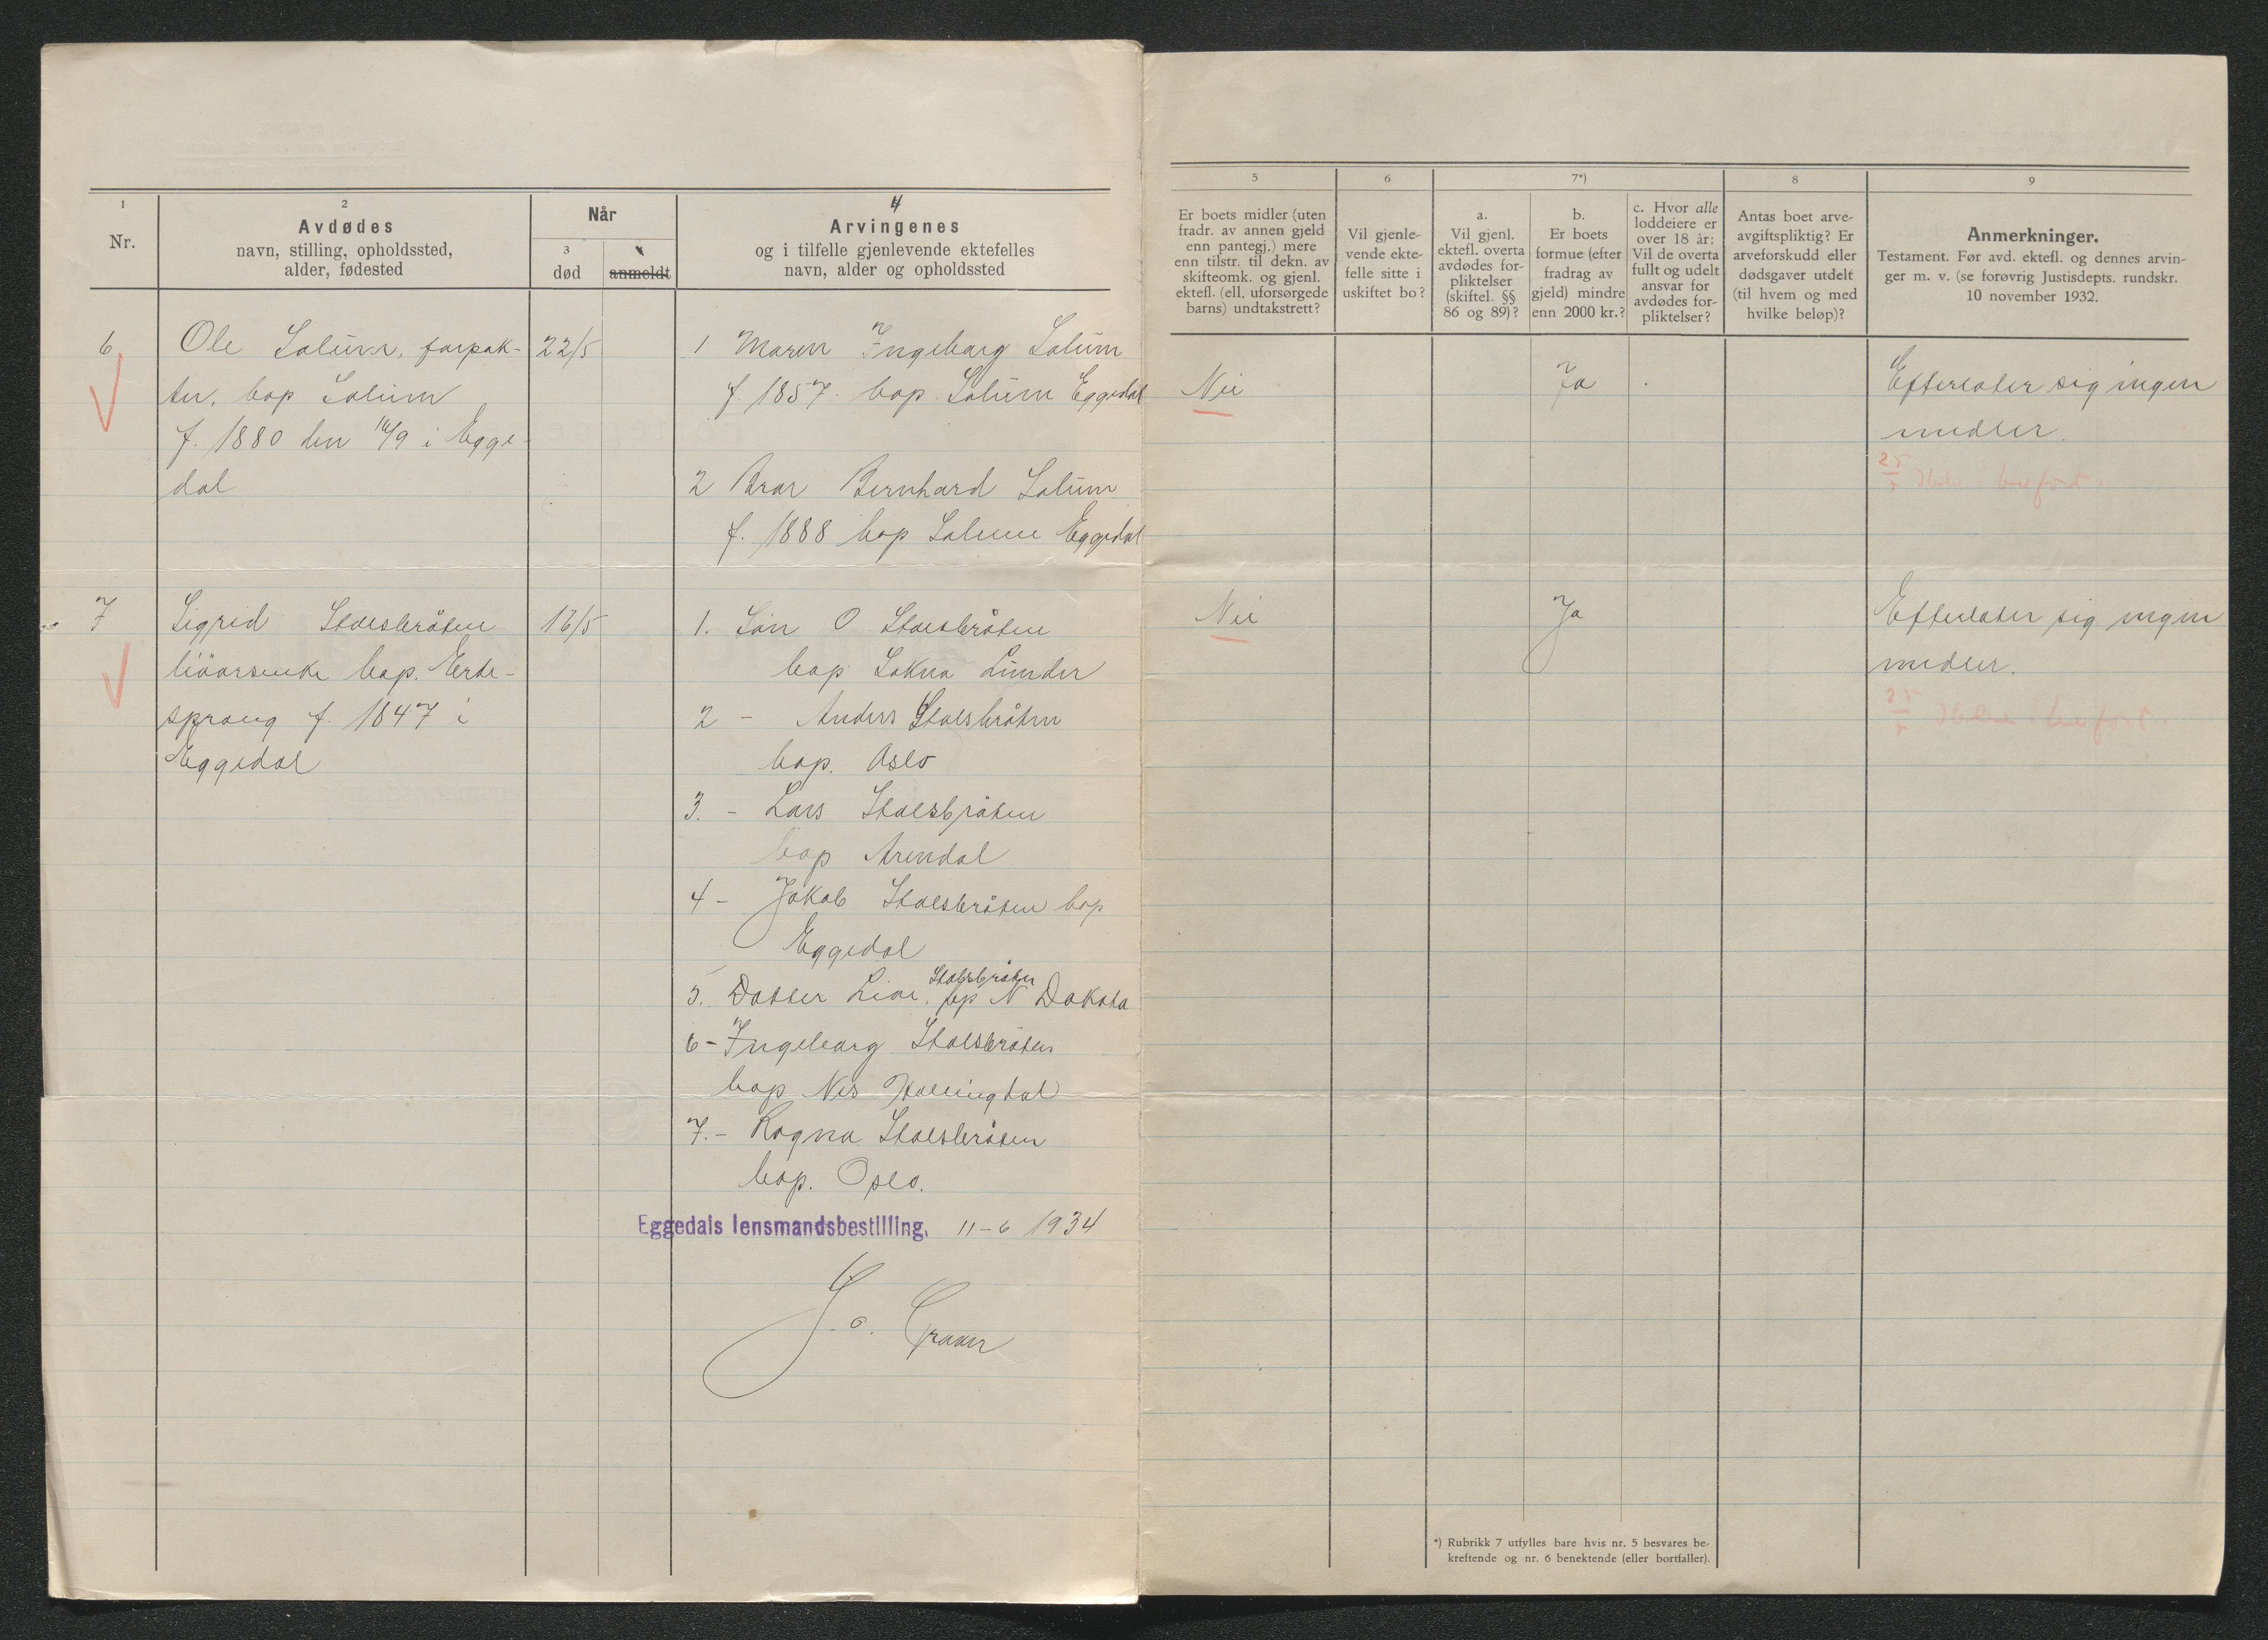 1
Nr.
2
Avdødes
navn, stilling, opholdssted,
alder, fødested
Når
3
død
4
anmeldt
4
Arvingenes
og i tilfelle gjenlevende ektefelles
navn, alder og opholdssted
5
Er boets midler (uten
fradr. av annen gjeld
enn pantegj.) mere
enn tilstr. til dekn. av
skifteomk. og gjenl.
ektefl. (ell. uforsørgede
barns) undtakstrett?
6
Vil gjenle-
vende ekte-
felle sitte i
uskiftet bo?
7*)
a.
Vil gjenl.
ektefl. overta
avdødes for-
pliktelser
(skiftel. §§
86 og 89)?
b.
Er boets
formue (efter
fradrag av
gjeld) mindre
enn 2000 kr.?
c. Hvor alle
loddeiere er
over 18 år:
Vil de overta
fullt og udelt
ansvar for
avdødes for-
pliktelser?
8
Antas boet arve-
avgiftspliktig? Er
arveforskudd eller
dødsgaver utdelt
(til hvem og med
hvilke beløp)?
9
Anmerkninger.
Testament. Før avd. ektefl. og dennes arvin-
ger m. v. (se forøvrig Justisdepts. rundskr.
10 november 1932.
6
Ole Solum, forpak-
ter, bop Solum
f. 1880 den 16/9 i Egge-
dal
22/5
1 Maren Ingeborg Solum
f. 1857. bop Solum Eggedal
2 Bror Bernhard Solum
f. 1888 bop Solum Eggedal
Nei
Ja
Efterlater sig ingen
midler.
7
Sigrid Stalsbråten
bop.
sprang f. 1847 i
Eggedal
16/5
1. Søn O Stalsbråten
bop Sokna Lunder
2 - Anders Stalsbråten
bop. Oslo
3. - Lars Stalsbråten
bop Arendal
4 - Jakob Stalsbråten bop
Eggedal
5. Datter Live. Stalsbråten bp N Dakota
6 - Ingeborg Stalsbråten
bop Nes Hallingdal
7. - Ragna Stalsbråten
bop. Oslo.
Nei
Ja
Efterlater sig ingen
midler.
Eggedals lensmandsbestilling, 11-6 1934
*) Rubrikk 7 utfylles bare hvis nr. 5 besvares be-
kreftende og nr. 6 benektende (eller bortfaller).